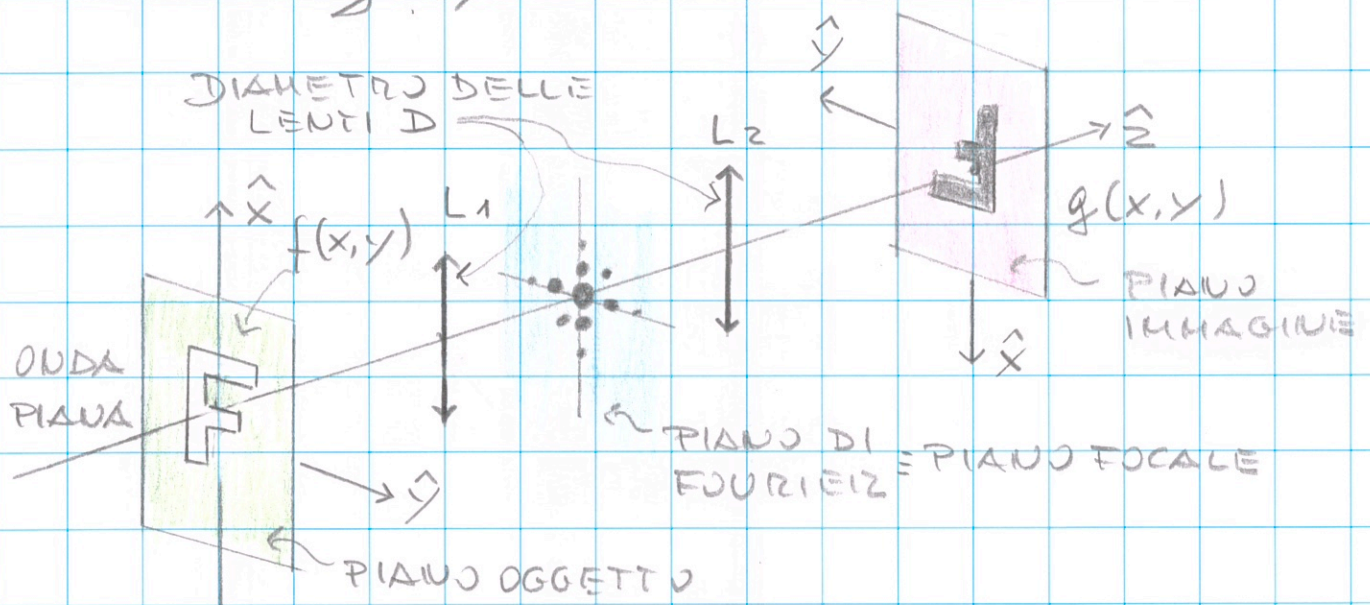 DIAMETRO DELLE
LENTI D
ŷ
L2
ẑ
x̂
L1
f(x,y)
g(x,y)
PIANO
IMMAGINE
x̂
ONDA
PIANA
PIANO DI
FOURIER ≡ PIANO FOCALE
ŷ
PIANO OGGETTO